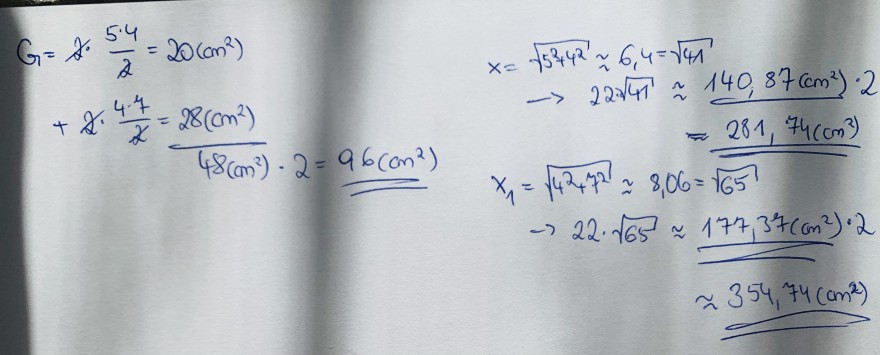 G = 2 · 5·4/2 = 20 (cm²)
+ 2 · 4·7/2 = 28 (cm²)
48 (cm²) · 2 = 96 (cm²)
x = √5²+4² ≈ 6,4 = √41
→ 22√41 ≈ 140,87 (cm²) · 2
= 281,74 (cm²)
x₁ = √4²+7² ≈ 8,06 = √65
→ 22·√65 ≈ 177,37 (cm²) · 2
≈ 354,74 (cm²)